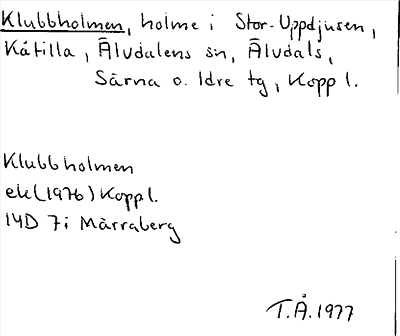 Klubbholmen, holme i Stor-Uppdjusen,
Kåtilla, Älvdalens sn, Älvdals,
Särna o. Idre tg, Kopp l.
Klubbholmen
ek (1976) Kopp l.
14D 7i Märraberg
T.Å. 1977